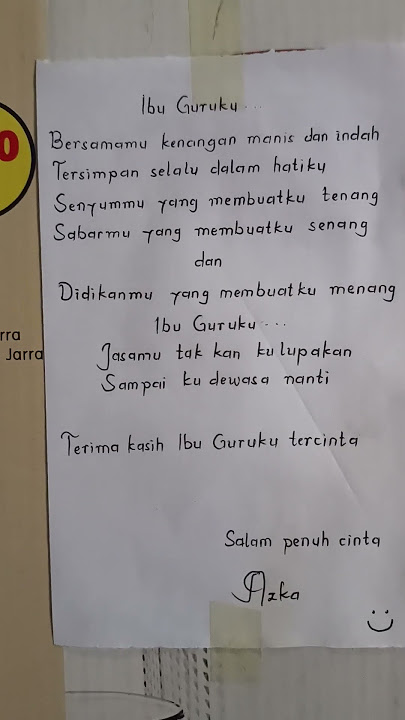 Ibu Guruku...
Bersamamu kenangan manis dan indah
Tersimpan selalu dalam hatiku
Senyummu yang membuatku tenang
Sabarmu yang membuatku senang
dan
Didikanmu yang membuatku menang
Ibu Guruku...
Jasamu tak kan ku lupakan
Sampai ku dewasa nanti
Terima kasih Ibu Guruku tercinta
Salam penuh cinta
Azka
0
rra
Jarra